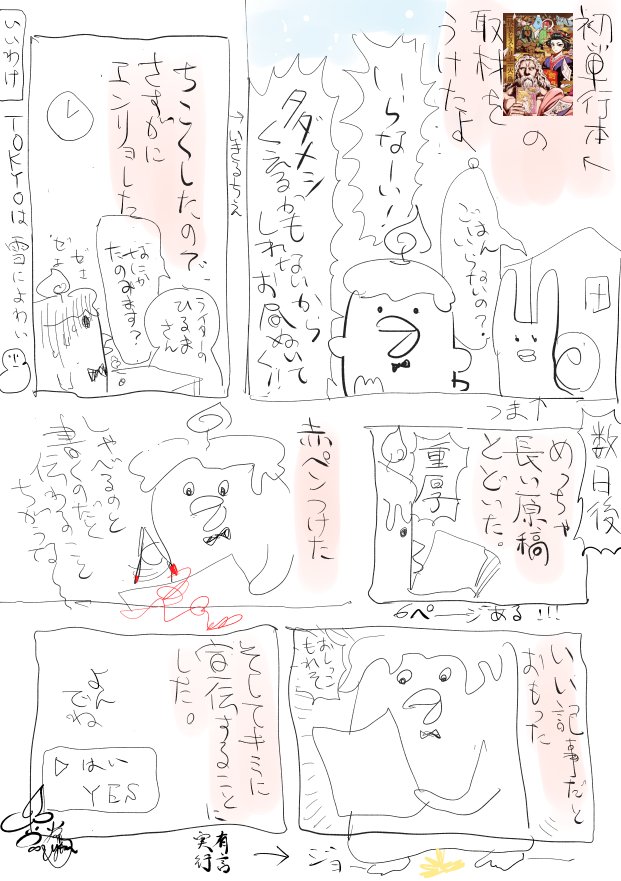 初単行本←
の
取材を
うけたよ
ごはん
いらないの?
いらなーい!
タダメシ
くえるかも
しれないから
お昼ぬいて
く!!
つま↑
→いきてるちえ
ちこくしたので、
さすがに
エンリョした
なにか
たのみます?
ライターの
ひるま
さん
ゼェ
ゼェ
いいわけ
TOKYOは雪によわい
数日後
めっちゃ
長い原稿
とどいた。
重厚
6ページある!!!
赤ペンつけた
しゃべるのと
書くのだと
伝わること
ちがうな
いい記事だと
おもった
おしっこ
もれそ
ジョー
そしてキミに
宣伝すること
した。
よん
でね
▷はい
YES
有言
実行
→